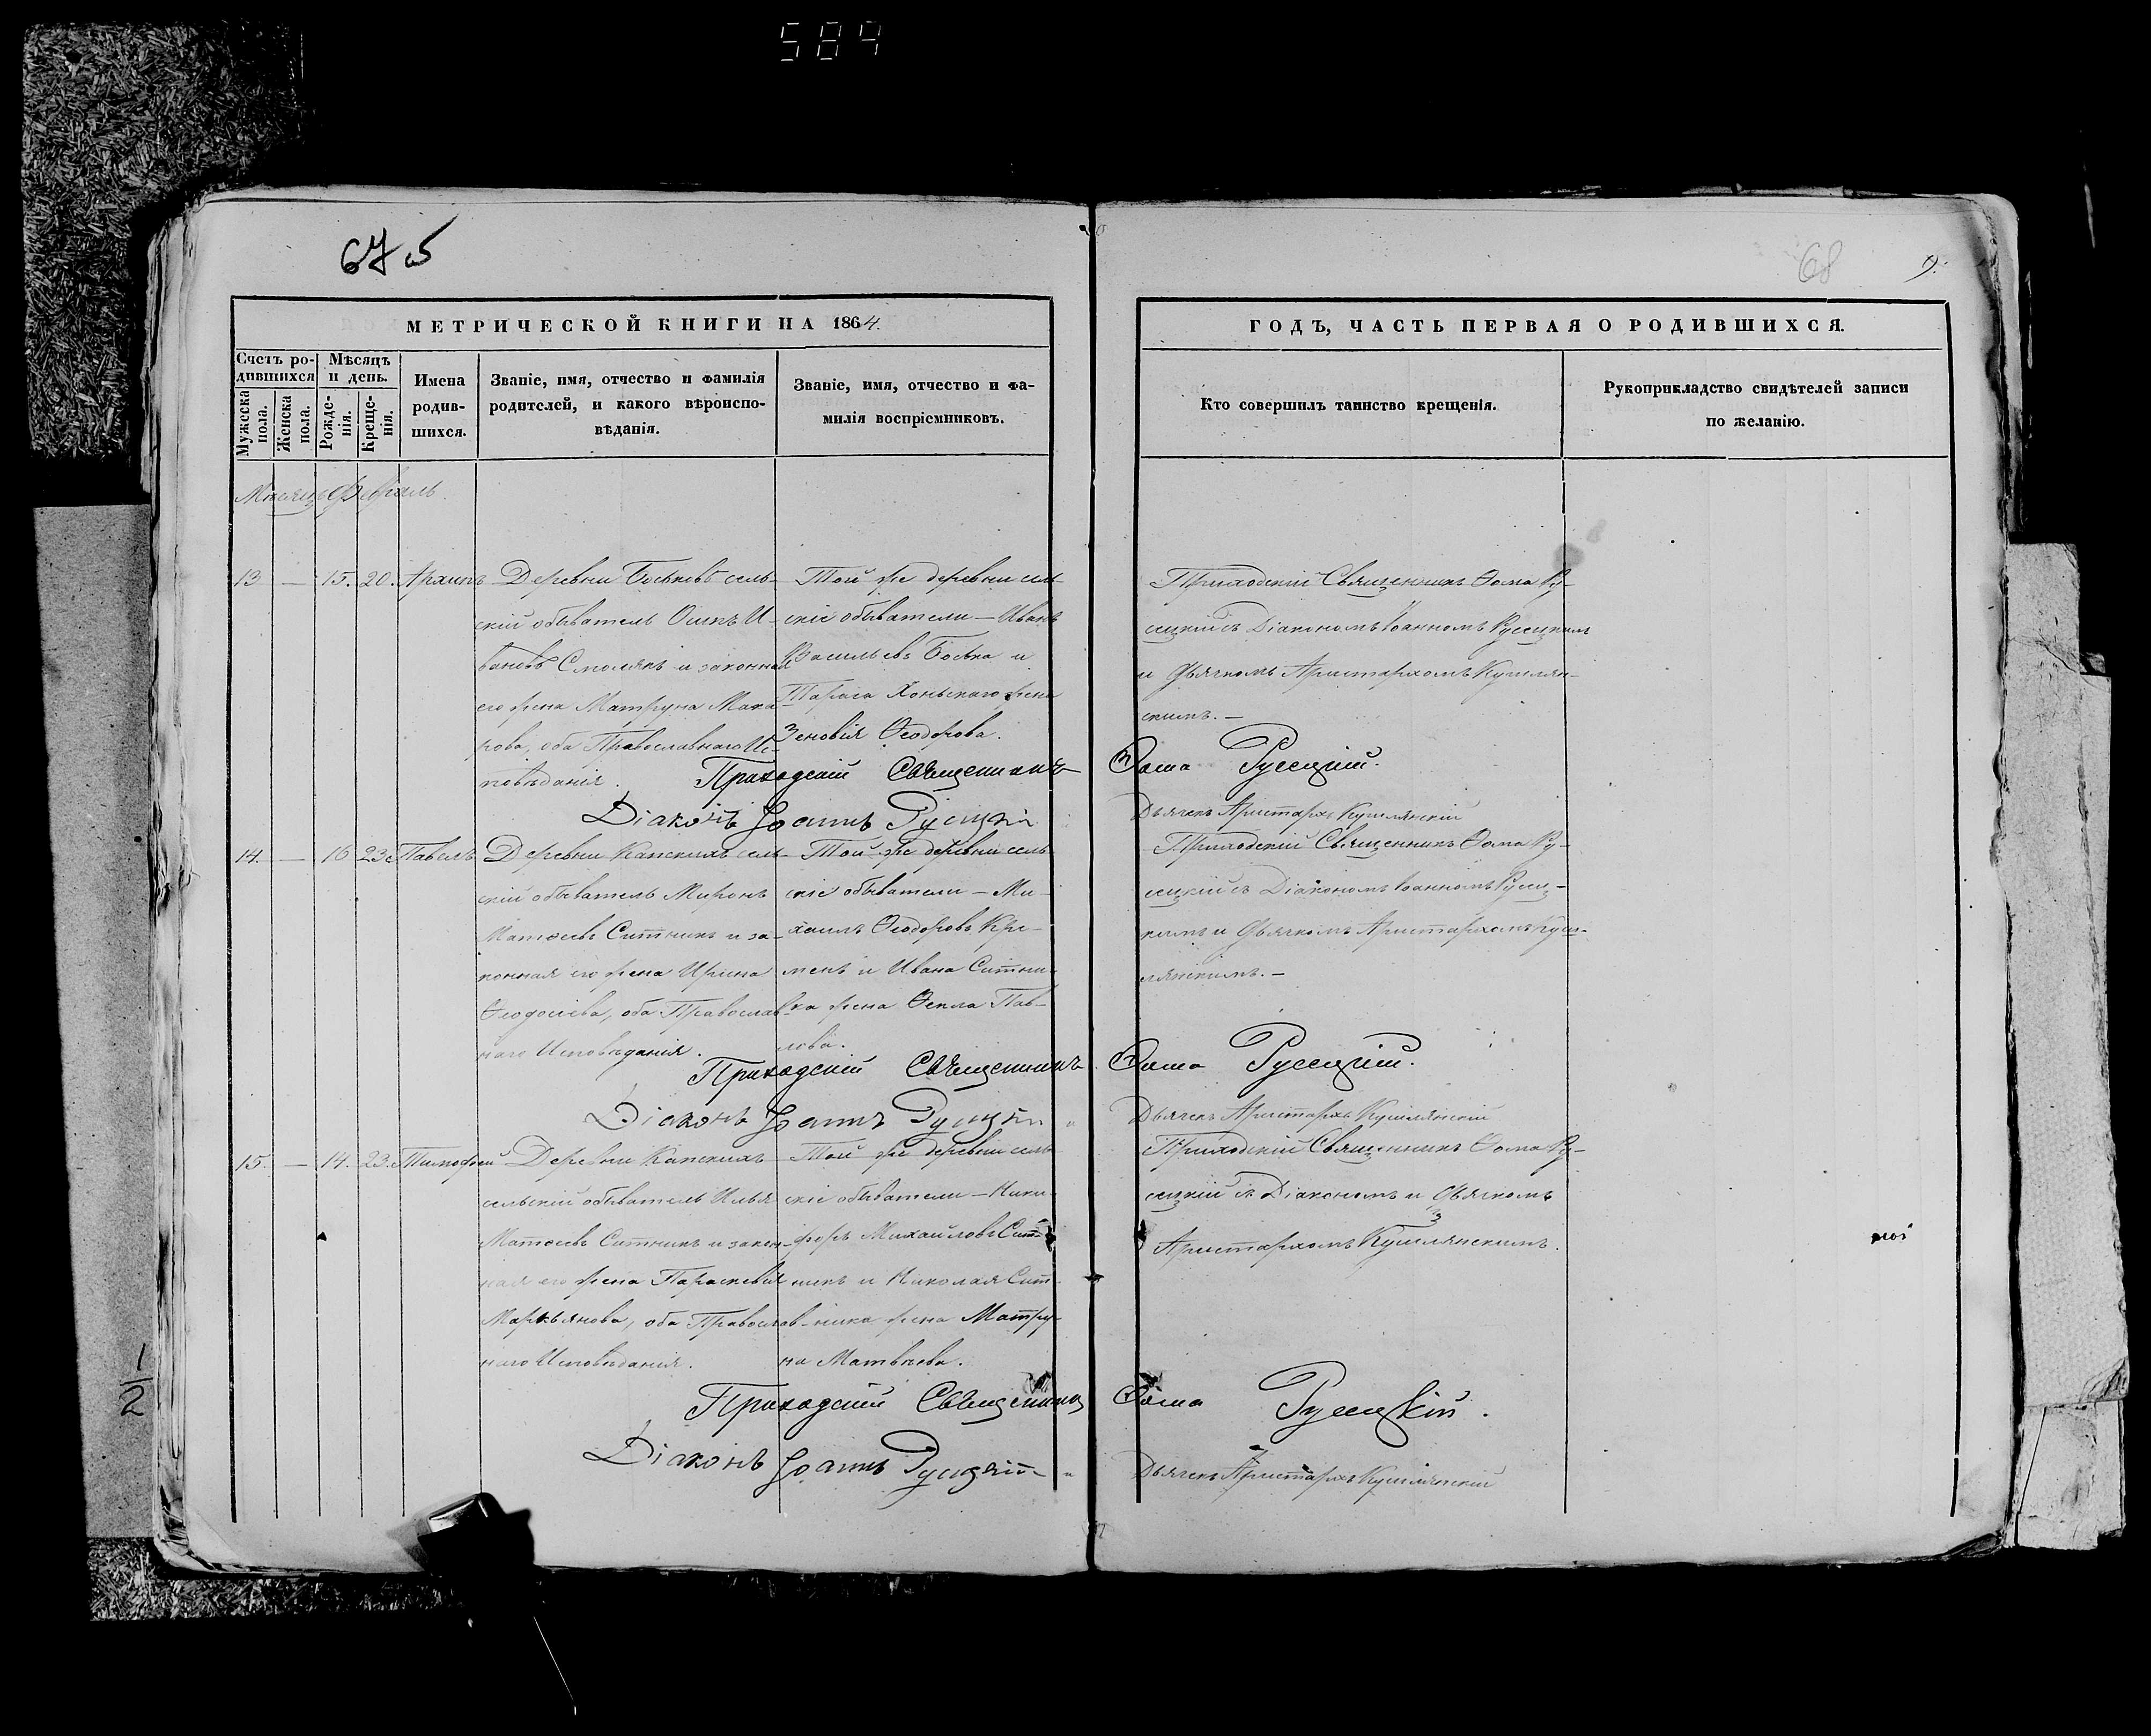 584
675
68
9.
МЕТРИЧЕСКОЙ КНИГИ НА 1864.
ГОДЪ, ЧАСТЬ ПЕРВАЯ О РОДИВШИХСЯ.
Счетъ ро-
дившихся
Мужеска пола.
Женска пола.
Мѣсяцъ
и день.
Рожде-
нія.
Креще-
нія.
Имена
родив-
шихся.
Званіе, имя, отчество и фамилія
родителей, и какого вѣроиспо-
вѣданія.
Званіе, имя, отчество и фа-
милія воспріемниковъ.
Кто совершилъ таинство крещенія.
Рукоприкладство свидѣтелей записи
по желанію.
Мѣсяцъ Февраль.
13 — 15. 20. Архипъ
Деревни Боськовъ сель-
скій обыватель Осипъ И-
вановъ Смолякъ и законная
его жена Матруна Мака-
рова, оба Православнаго Ис-
повѣданія.
Той же деревни сель-
скіе обыватели — Иванъ
Васильевъ Боська и
Тараса Хоньскаго жена
Зеновія Ѳеодорова.
Приходскій Священникъ Ѳома Ру-
сецкій съ Діакономъ Іоанномъ Русецкимъ
и Дьячкомъ Аристархомъ Кушлян-
скимъ. —
Приходскій Священникъ Ѳома Русецкій.
Діаконъ Іоаннъ Русецкій
Дьячекъ Аристархъ Кушлянскій
14. — 16 23. Павелъ
Деревни Капскихъ сель-
скій обыватель Миронъ
Матѳеевъ Ситникъ и за-
конная его жена Ирина
Ѳеодосіева, оба Православ-
наго Исповѣданія.
Той же деревни сель-
скіе обыватели — Ми-
хаилъ Ѳеодоровъ Кре-
менъ и Ивана Ситни-
ка жена Ѳекла Пав-
лова.
Приходскій Священникъ Ѳома Ру-
сецкій съ Діакономъ Іоанномъ Русец-
кимъ и Дьячкомъ Аристархомъ Куш-
лянскимъ. —
Приходскій Священникъ Ѳома Русецкій.
Діаконъ Іоаннъ Русецкій
Дьячекъ Аристархъ Кушлянскій
15. — 14. 23. Тимофей
Деревни Капскихъ
сельскій обыватель Илья
Матѳеевъ Ситникъ и закон-
ная его жена Параскевія
Маркьянова, оба Православ-
наго Исповѣданія.
Той же деревни сель-
скіе обыватели — Ники-
форъ Михайловъ Сит-
никъ и Николая Сит-
ника жена Матру-
на Матвѣева.
Приходскій Священникъ Ѳома Ру-
сецкій съ Діакономъ и Дьячкомъ
Аристархомъ Кушлянскимъ.
Приходскій Священникъ Ѳома Русецкій.
Діаконъ Іоаннъ Русецкій
Дьячекъ Аристархъ Кушлянскій
1/2